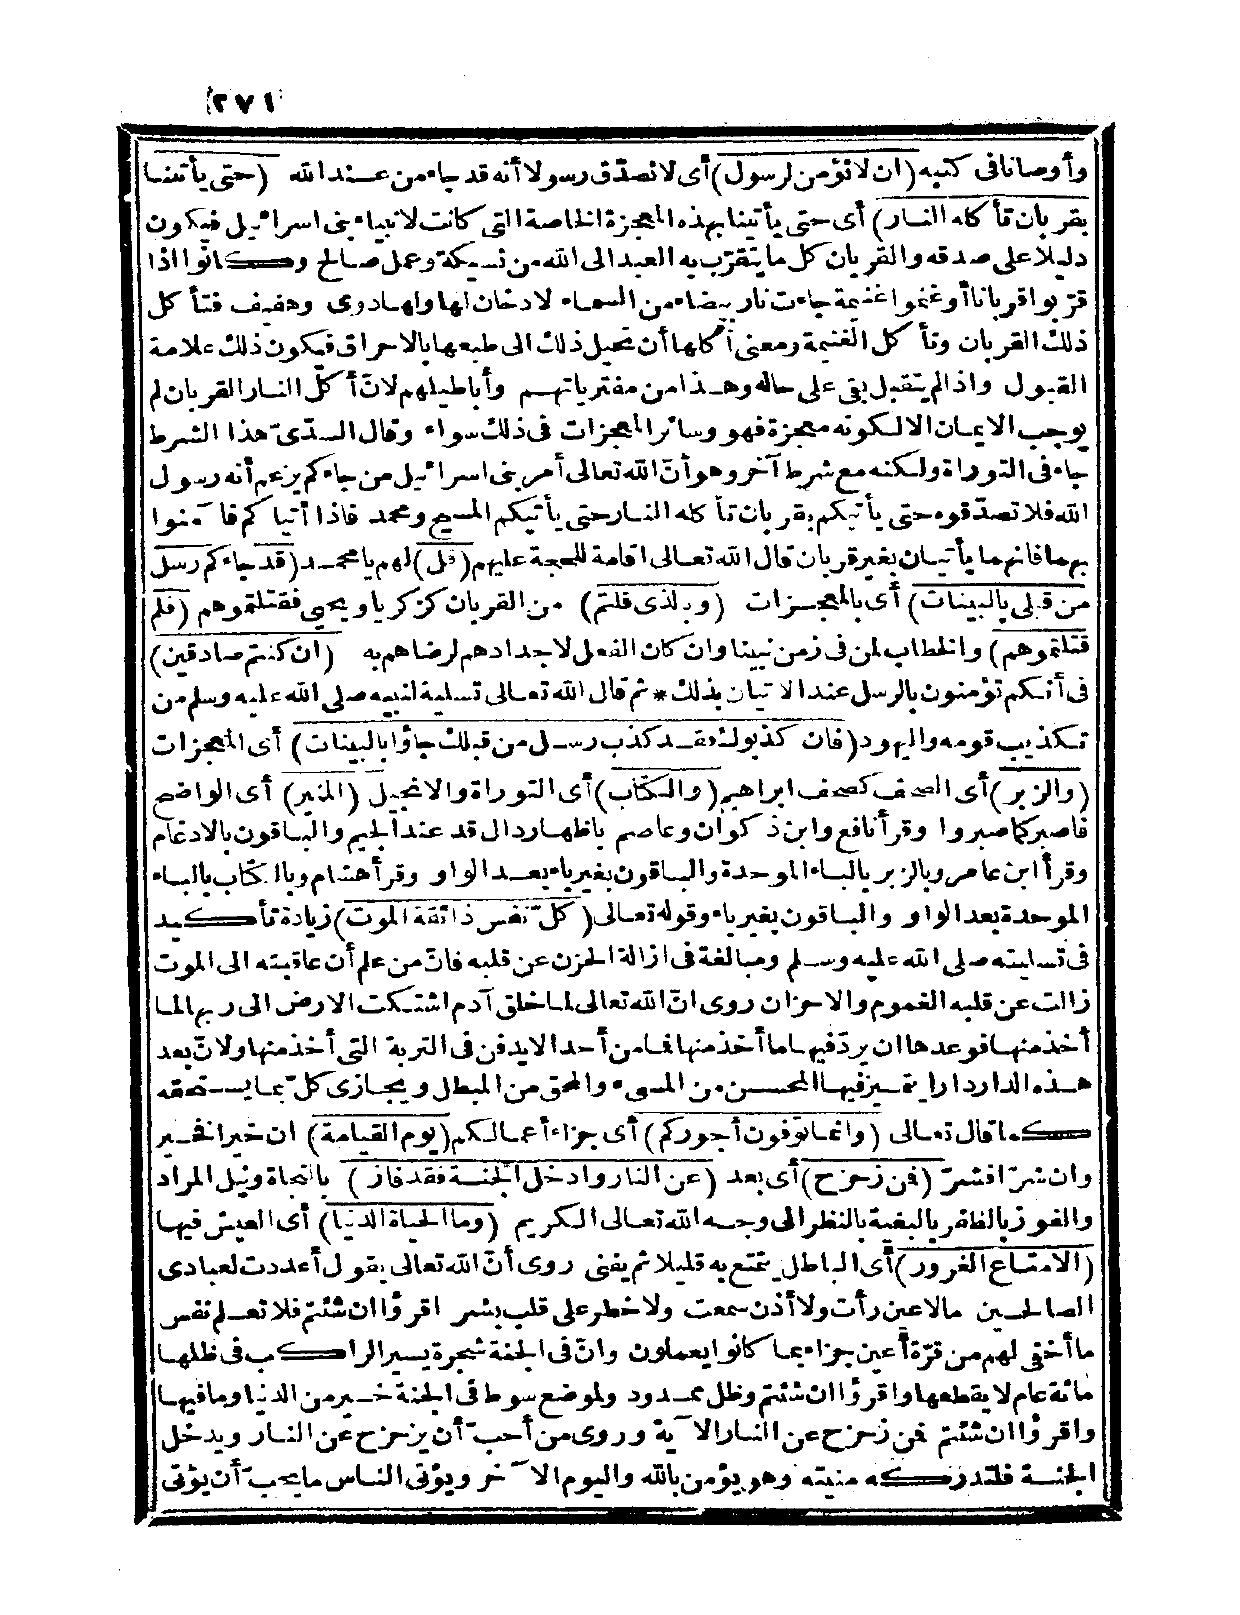 (٢٧١)
وأوصانا فى كتبه (ان لا نؤمن لرسول) أى لا نصدّق رسولا أنه قد جاء من عند الله (حتى يأتينا
بقربان تأكله النار) أى حتى يأتينا بهذه المعجزة الخاصة التى كانت لانبياء بنى اسرائيل فيكون
دليلا على صدقه والقربان كل ما يتقرّب به العبد الى الله من نسيكة وعمل صالح وكانوا اذا
قرّبوا قربانا أو غنموا غنيمة جاءت نار بيضاء من السماء لا دخان لها ولها دوى وهفيف فتأكل
ذلك القربان وتأكل الغنيمة ومعنى أكلها أن تحيل ذلك الى طبعها بالاحراق فيكون ذلك علامة
القبول واذا لم يتقبل بقى على حاله وهذا من مفترياتهم وأباطيلهم لانّ أكل النار القربان لم
يوجب الايمان الا لكونه معجزة فهو وسائر المعجزات فى ذلك سواء وقال السدّى هذا الشرط
جاء فى التوراة ولكنه مع شرط آخر وهو أنّ الله تعالى أمر بنى اسرائيل من جاءكم يزعم أنه رسول
الله فلا تصدّقوه حتى يأتيكم بقربان تأكله النار حتى يأتيكم المسيح ومحمد فاذا أتياكم فآمنوا
بهما فانهما يأتيان بغير قربان قال الله تعالى اقامة للحجة عليهم (قل) لهم يا محمد (قد جاءكم رسل
من قبلى بالبينات) أى بالمعجزات (وبالذى قلتم) من القربان كزكريا ويحيى فقتلتموهم (فلم
قتلتموهم) والخطاب لمن فى زمن نبينا وان كان الفعل لاجدادهم لرضاهم به (ان كنتم صادقين)
فى أنكم تؤمنون بالرسل عند الاتيان بذلك * ثم قال الله تعالى تسلية لنبيه صلى الله عليه وسلم من
تكذيب قومه واليهود (فان كذبوك فقد كذب رسل من قبلك جاؤا بالبينات) أى المعجزات
(والزبر) أى الصحف كصحف ابراهيم (والكتاب) أى التوراة والانجيل (المنير) أى الواضح
فاصبر كما صبروا وقرأ نافع وابن ذكوان وعاصم باظهار دال قد عند الجيم والباقون بالادغام
وقرأ ابن عامر وبالزبر بالباء الموحدة والباقون بغير باء بعد الواو وقرأ هشام وبالكتاب بالباء
الموحدة بعد الواو والباقون بغير باء وقوله تعالى (كلّ نفس ذائقة الموت) زيادة تأكيد
فى تسليته صلى الله عليه وسلم ومبالغة فى ازالة الحزن عن قلبه فانّ من علم أن عاقبته الى الموت
زالت عن قلبه الغموم والاحزان روى انّ الله تعالى لما خلق آدم اشتكت الارض الى ربها لما
أخذ منها فوعدها ان يردّ فيها ما أخذ منها فما من أحد الا يدفن فى التربة التى أخذ منها ولانّ بعد
هذه الدار دارا يتميز فيها المحسن من المسىء والمحق من المبطل ويجازى كلّ بما يستحقه
كما قال تعالى (وانما توفون أجوركم) أى جزاء أعمالكم (يوم القيامة) ان خيرا فخير
وان شرّا فشرّ (فمن زحزح) أى بعد (عن النار وادخل الجنة فقد فاز) بالنجاة ونيل المراد
والفوز بالظفر بالبغية بالنظر الى وجه الله تعالى الكريم (وما الحياة الدنيا) أى العيش فيها
(الا متاع الغرور) أى الباطل يتمتع به قليلا ثم يفنى روى أنّ الله تعالى يقول أعددت لعبادى
الصالحين مالا عين رأت ولا أذن سمعت ولا خطر على قلب بشر اقرؤا ان شئتم فلا تعلم نفس
ما أخفى لهم من قرّة أعين جزاء بما كانوا يعملون وانّ فى الجنة شجرة يسير الراكب فى ظلها
مائة عام لا يقطعها واقرؤا ان شئتم وظل ممدود ولموضع سوط فى الجنة خير من الدنيا وما فيها
واقرؤا ان شئتم فمن زحزح عن النار الآية وروى من أحبّ أن يزحزح عن النار ويدخل
الجنة فلتدركه منيته وهو يؤمن بالله واليوم الآخر ويؤتى الناس ما يحبّ أن يؤتى